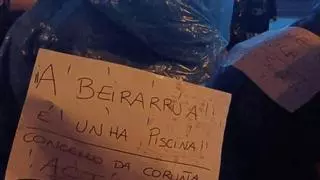 ¡A BEIRARRÚA!!
É UNHA PISCINA!!
CONCELLO DA CORUÑA